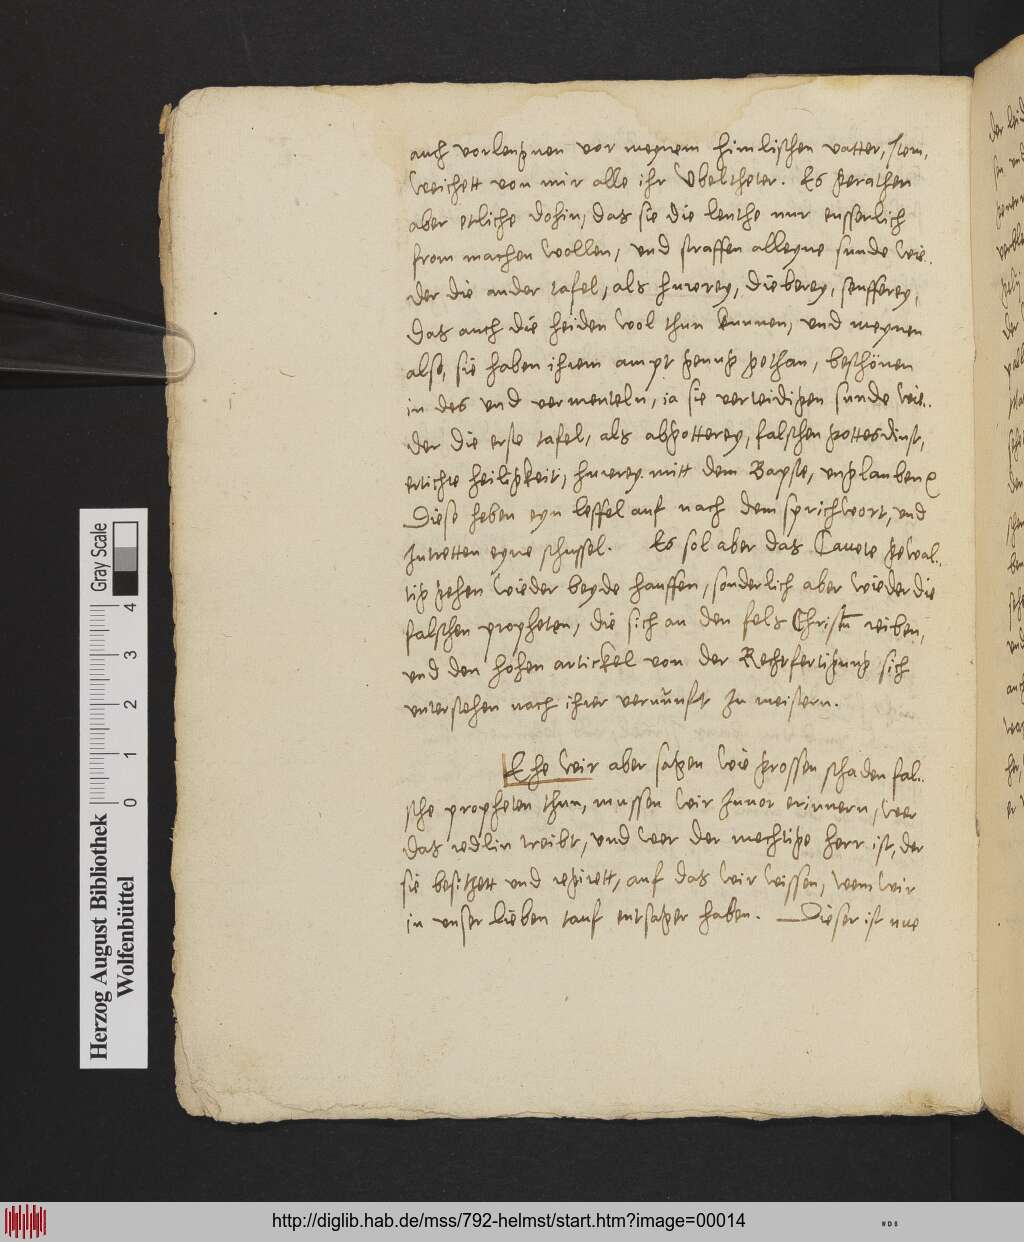 auch vorleugnen vor meynem himlischen vatter, Item,
Weichett von mir alle ihr Vbeltheter. Es gerathen
aber etliche dohin, das sie die leuthe nur eusserlich
from machen wollen, vnd straffen alleyne sunde wie-
der die ander tafel, als hurerey, dieberey, seufferey,
das auch die heiden wol thun kunnen, vnd meynen
also, sie haben ihrem ampt genug gethan, beschönen
in des vnd vermenteln, ia sie verteidigen sunde wie-
der die erste tafel, als abgotterey, falschen gottesdinst,
ertichte heiligkeit, hurerey mitt dem Bapste, vnglauben
Diese heben eyn leffel auf nach dem sprichwort, vnd
zutretten eyne schussel. Es sol aber das Cauete gewal-
tig gehen wieder beyde hauffen, sonderlich aber wieder die
falschen propheten, die sich an den fels Christū reiben,
vnd den hohen artickel von der Rechtfertigung sich
vnterstehen nach ihrer vernūnft zu meistern.
Ehe wir aber sagen wie grossen schaden fal-
sche propheten thun, mussen wir zuuor erinnern, wer
das redlin treibt, vnd wer der mechtige herr ist, der
sie besitzett vnd regirett, auf das wir wissen, wem wir
in vnser lieben tauf entsaget haben. Dieser ist nue
Herzog August Bibliothek
Wolfenbüttel
Gray Scale
0 1 2 3 4
http://diglib.hab.de/mss/792-helmst/start.htm?image=00014